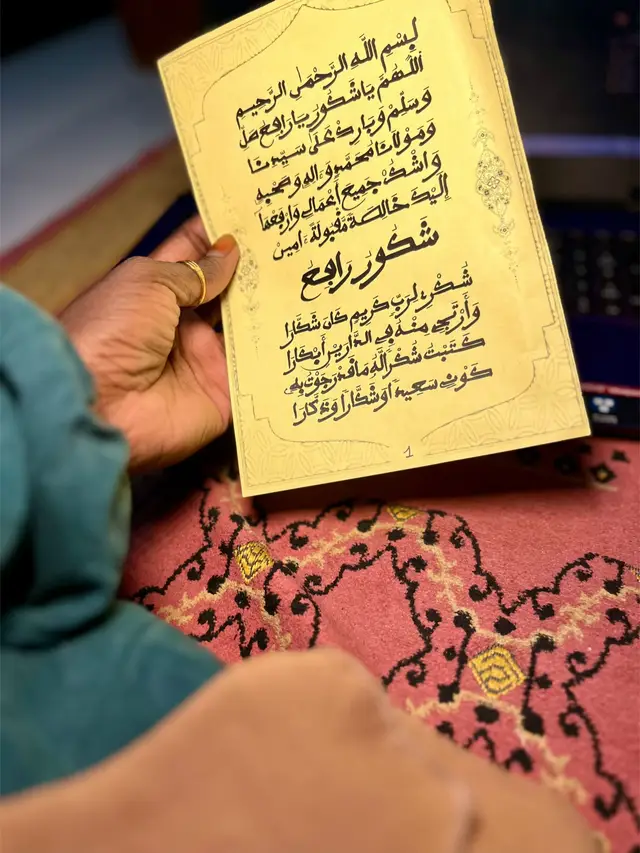 بِسْمِ اللَّهِ الرَّحْمٰنِ الرَّحِيمِ
اَللَّهُمَّ يَا شَكُورُ يَا رَافِعُ صَلِّ
وَسَلِّمْ وَبَارِكْ عَلَى سَيِّدِنَا
وَمَوْلَانَا مُحَمَّدٍ وَءَالِهِ وَصَحْبِهِ
وَاشْكُرْ جَمِيعَ أَعْمَالِي وَارْفَعْهَا
إِلَيْكَ خَالِصَةً مَّقْبُولَةً ءَامِين
شَكُورٌ رَافِعٌ
شُكْرِي لِرَبٍّ كَرِيمٍ كَانَ شَكَّارَا
وَأَرْتَجِي مِنْهُ فِي الدَّارَيْنِ أَبْكَارَا
كَتَبْتُ شُكْرًا لَّهُ مَا قَدْ رَجَوْتُ بِهِ
كَوْنِي سَعِيدًا وَشَكَّارًا وَذَكَّارَا
1